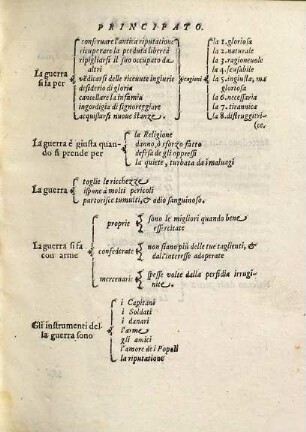 PRINCIPATO.
La guerra si fa per
confiruare l'antica riputatione
ricuperare la perduta libertà
ripigliarsi il suo occupato da altri
vēdicarsi delle riceuute ingiurie
desiderio di gloria
cancellare la infamia
ingordigia di signoreggiare
acquistarsi nuoue stanze
la 1. gloriosa
la 2. naturale
la 3. ragioneuole
la 4. sensibile
la 5. ingiusta, ma gloriosa
la 6. necessaria
la 7. tirannica
la 8. distruggitrice.
La guerra è giusta quando si prende per
la Religione
danno, ò sforzo fatto
difesa de gli oppressi
la quiete, turbata da i maluagi
La guerra
toglie le ricchezze
ispone à molti pericoli
partorisce tumulti, & odio sanguinoso.
La guerra si fa con arme
proprie
sono le migliori quando bene essercitate
confederate
non siano più delle tue taglienti, & dall'interesse adoperate
mercenarie
spesse volte dalla perfidia irruginite.
Gli instrumenti della guerra sono
i Capitani
i Soldati
i danari
l'arme
gli amici
l'amore de i Popoli
la riputatione